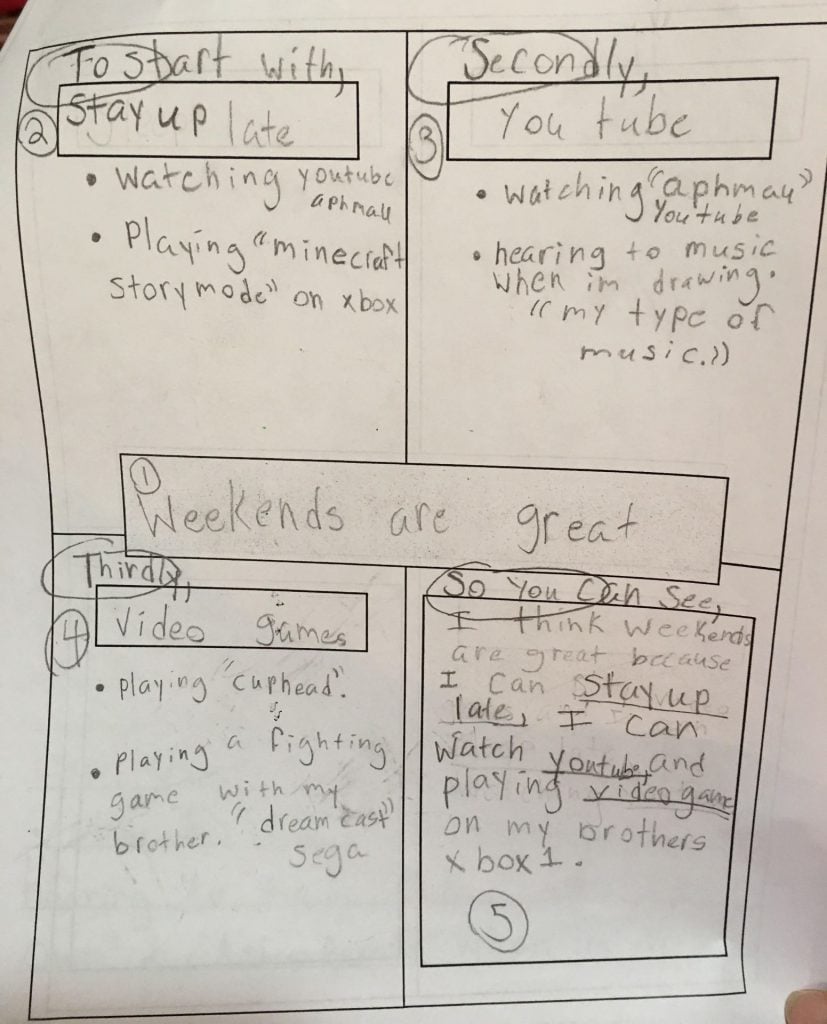 To start with,
② Stay up late
• watching youtube
aphmau
• Playing "minecraft
story mode" on xbox
Secondly,
③ You tube
• watching "aphmau"
Youtube
• hearing to music
when im drawing.
"my type of
music."
①
Weekends are great
Thirdly,
④ video games
• playing "cuphead".
• playing a fighting
game with my
brother. "dream cast"
sega
So you can see,
I think weekends
are great because
I can stay up
late, I can
watch youtube, and
playing video game
on my brothers
xbox 1.
⑤